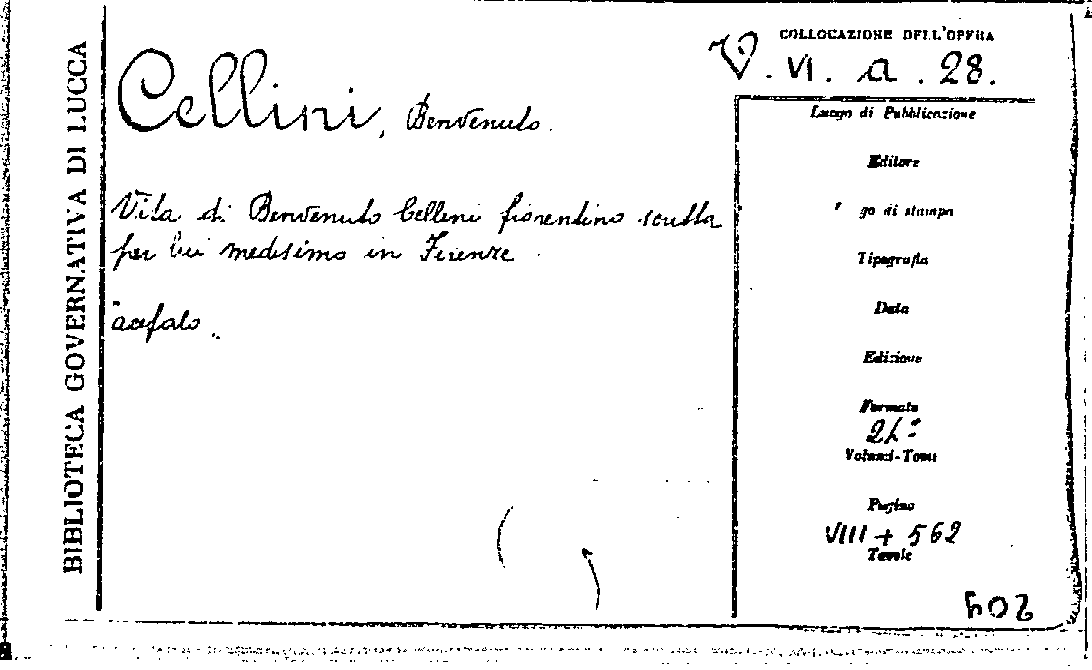 BIBLIOTECA GOVERNATIVA DI LUCCA
Cellini, Benvenuto.
Vita di Benvenuto Cellini fiorentino scritta
per lui medesimo in Firenze
acefalo.
COLLOCAZIONE DELL'OPERA
V. VI. a. 28.
Luogo di Pubblicazione
Editore
go di stampa
Tipografia
Data
Edizione
Formato
Volumi-Tomi
Pagine
VIII + 562
Tavole